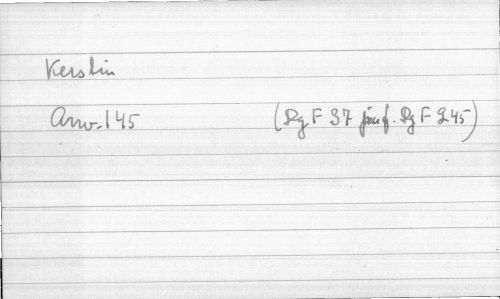 Kerstin
Arw. 145 (Rg F 37 jämf. Rg F 245)